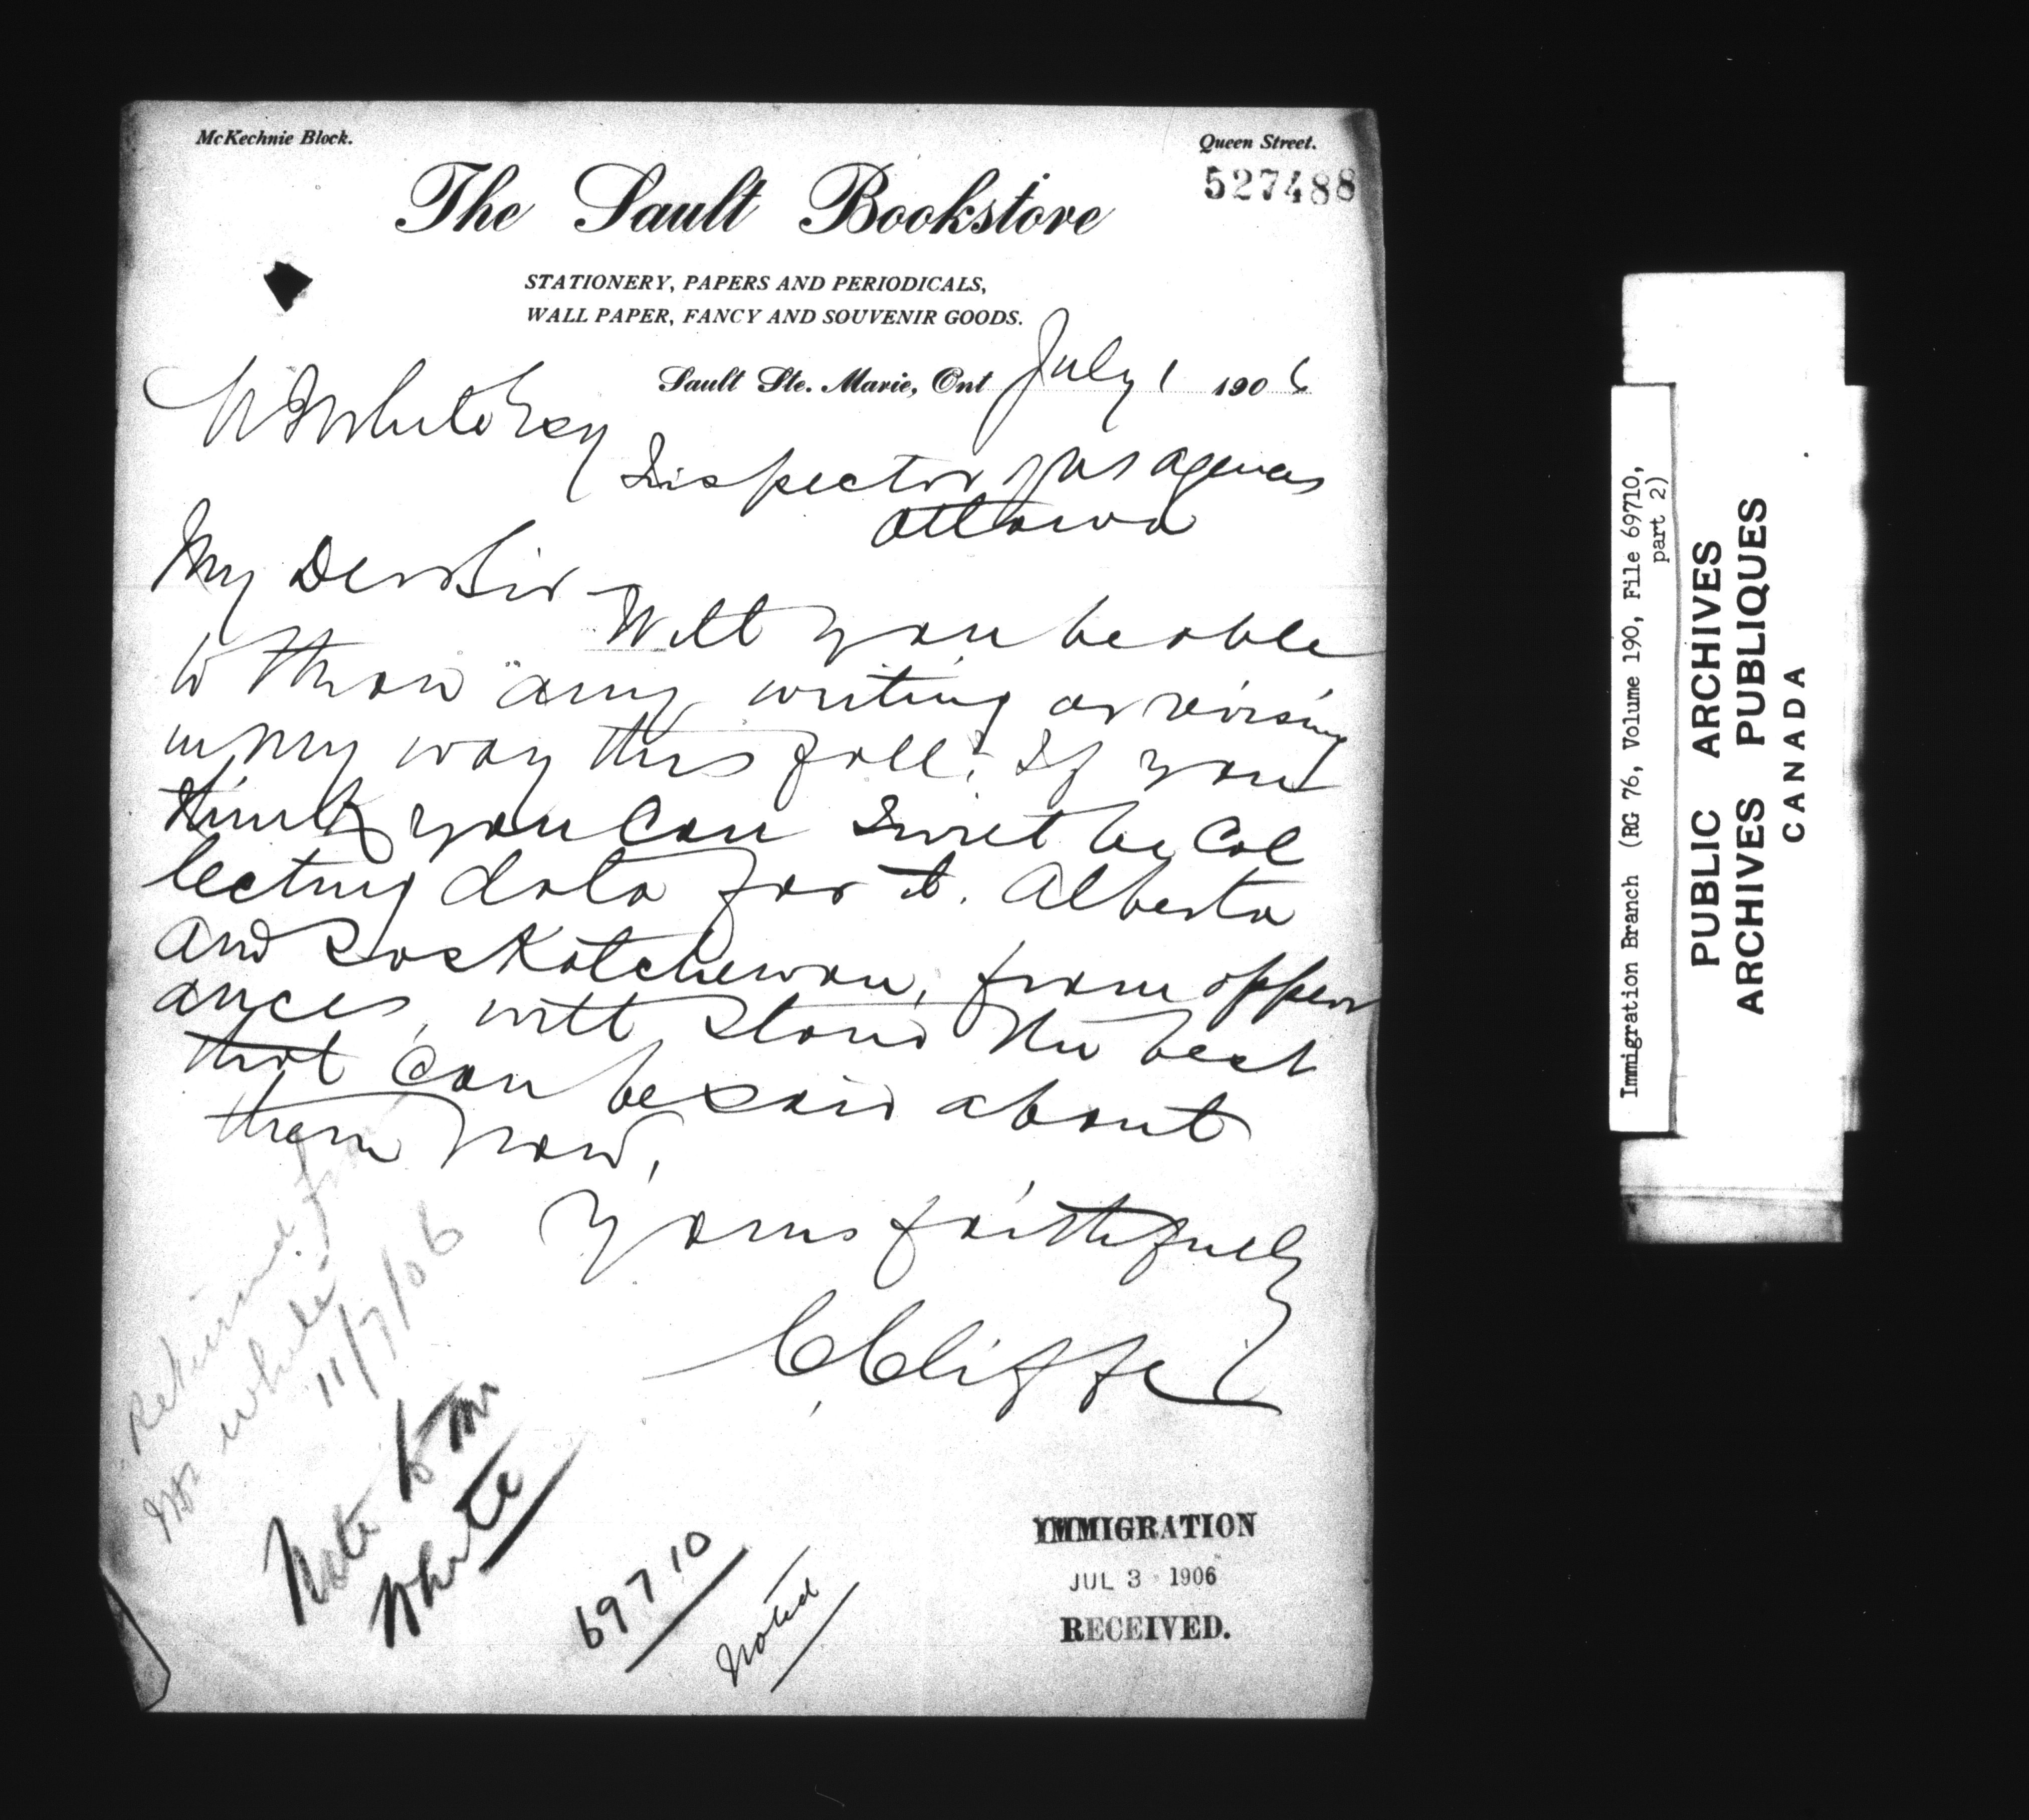 McKechnie Block.
Queen Street.
527488
The Sault Bookstore
STATIONERY, PAPERS AND PERIODICALS,
WALL PAPER, FANCY AND SOUVENIR GOODS.
Sault Ste. Marie, Ont July 1 1906
W J White Esq
Inspector of US agencies
Ottawa
My Dear Sir
Will you be able
to throw any writing or revising
in my way this fall? If you
think you can I will be col
lecting data for it. Alberta
and Saskatchewan, from appear
ances, will stand the best
that can be said about
them now.
Yours faithfully
C Cliffe
Returned from
Mr White
11/7/06
Note to Mr
White
69710
Noted
IMMIGRATION
JUL 3 1906
RECEIVED.
Immigration Branch (RG 76, Volume 190, File 69710,
part 2)
PUBLIC ARCHIVES
ARCHIVES PUBLIQUES
CANADA